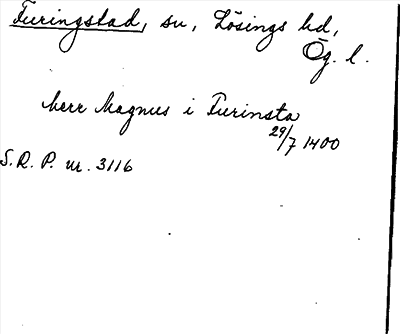 Furingstad, sn, Lösings hd,
Ög. l.
herr Magnus i Furinsta
29/7 1400
S.R.P. nr. 3116